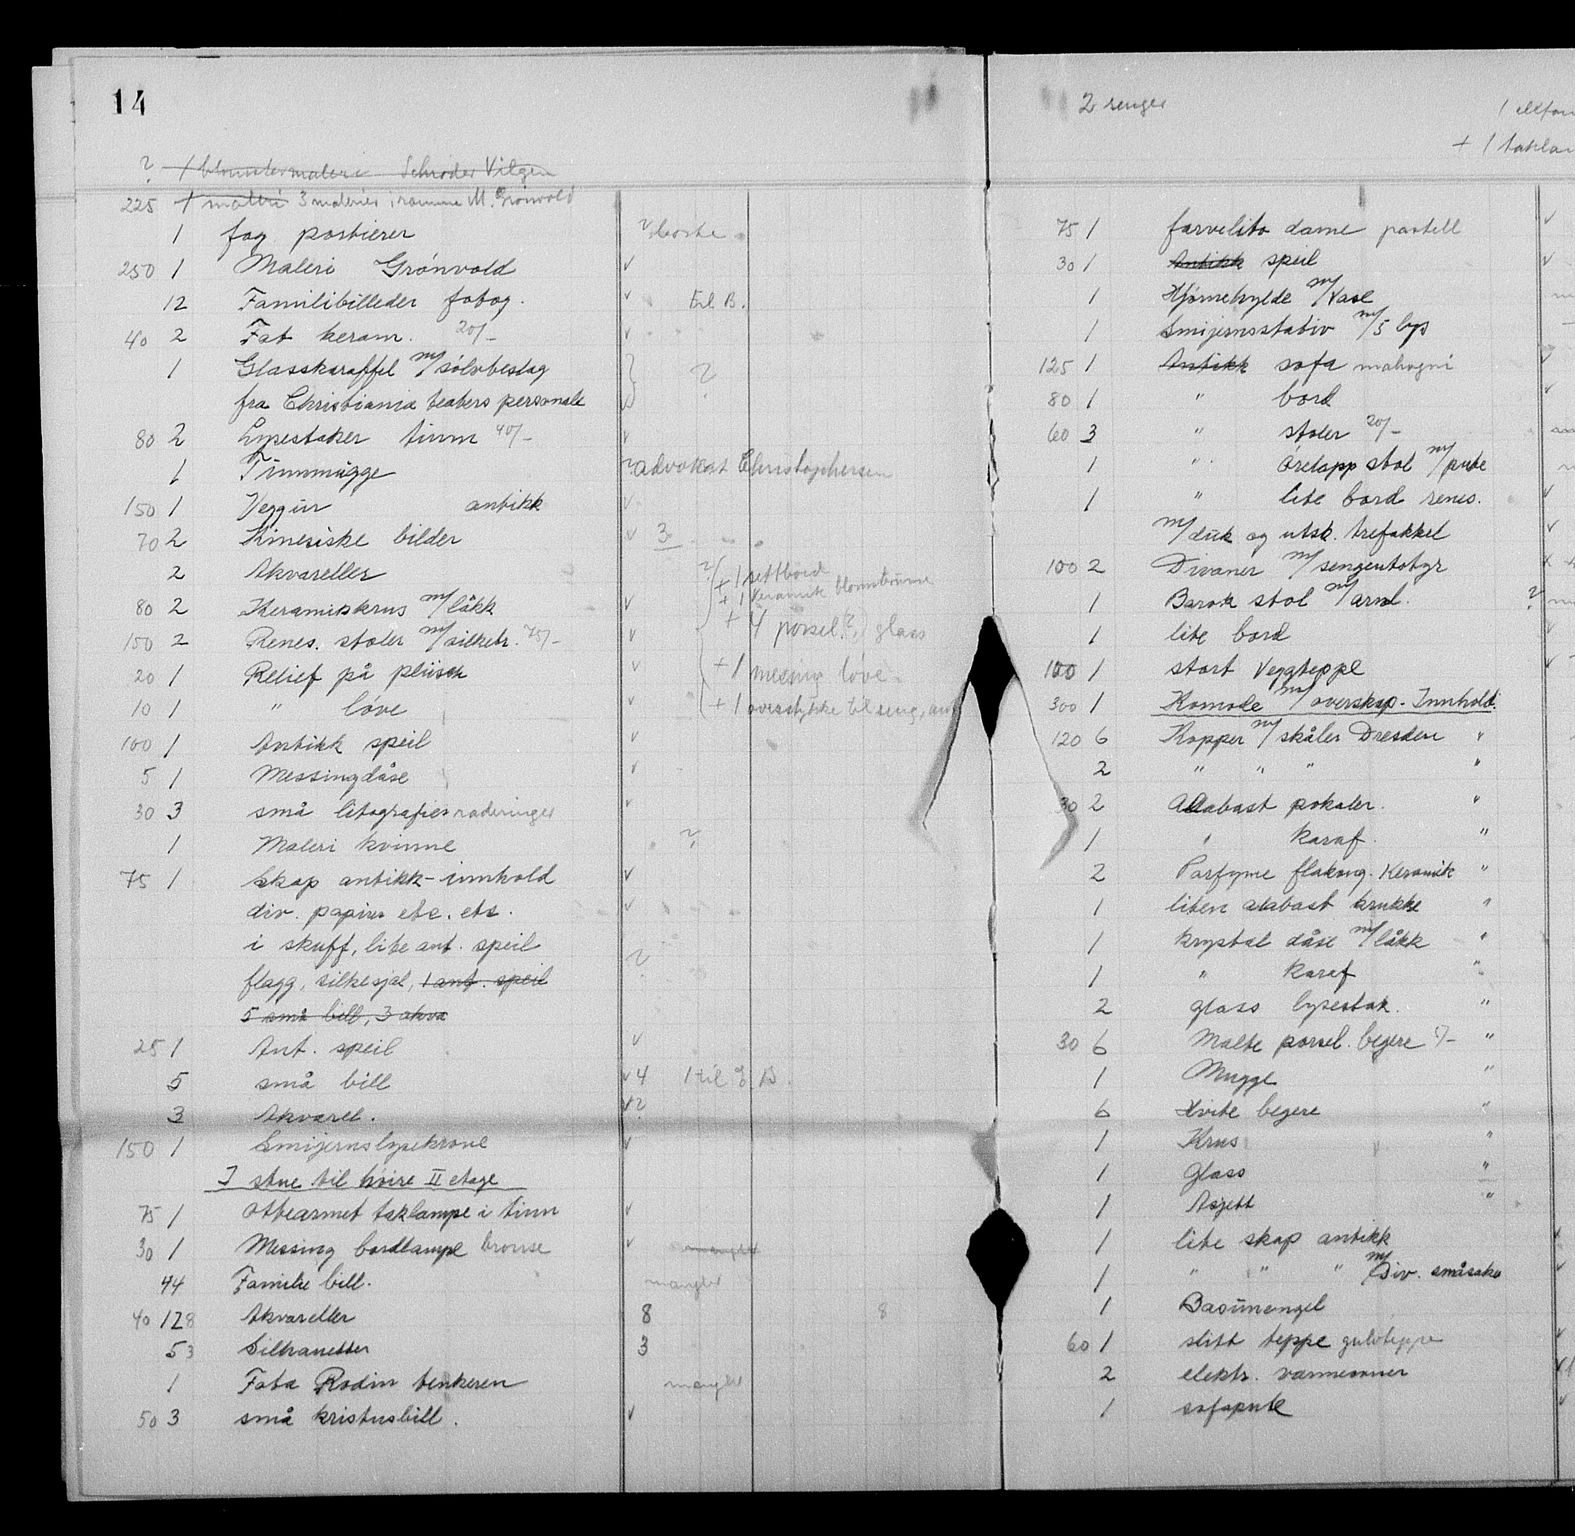 14
? 1 blomstermaleri Schrøder Vilgen
225 1 maleri 3 malerier i ramme M. Grønvold
1 fag portierer ? borte
250 1 Maleri Grönvold √
12 Familibilleder fotog. √ til B.
40 2 Fat keram. 20/- √
1 Glasskaraffel m/sölvbeslag ?
fra Christiania teaters personale
80 2 Lysestaker tinn 40/- √
1 Tinnmugge ? advokat Christophersen
150 1 Veggur antikk √
70 2 Kinesiske bilder √ 3
2 Akvareller ? + 1 settbord
+ 1 keramik blomsterurne
80 2 Keramikkrus m/låkk √ + 4 porsel. (?) glass
150 2 Renes. stoler m/silketr. 75/- √
20 1 Relief på plüsch √ + 1 messing løve
10 1 " löve √ + 1 overstykke til seng, ant
100 1 Antikk speil √
5 1 Messingdåse √
30 3 små litografier raderinger √
1 Maleri kvinne ?
75 1 Skap antikk - innhold √
div. papirer etc. etc. √
i skuff, lite ant. speil
flagg, silkesjal, 1 ant. speil ?
5 små bill, 3 akva
25 1 Ant. speil √
5 små bill √ 4 1 til B.
3 Akvarel. √ ?
150 1 Smijernslysekrone √
I stue til höire II etage
75 1 Otbearmet taklampe i tinn √
30 1 Messing bordlampe bronse √ mangler
44 Familie bill. mangler
40 128 Akvareller 8 8
53 Silhouetter 3
1 Foto Rodin tenkeren mangler
50 3 små kristusbill. √
2 senger
+ 1
75 1 farvelito dame pastell √
30 1 Antikk speil √
1 Hjörnehylde m/Vase
1 Smijernsstativ m/5 lys
125 1 Antikk sofa mahogni √
80 1 " bord √
60 3 " stoler 20/-
1 " Öreklapp stol m/pute
1 " lite bord renes. √
m/duk og utsk. trefakkel √
100 2 Divaner m/sengeutstyr
1 Barok stol m/arml. ?
1 lite bord √
100 1 stort Veggteppe
300 1 Komode m/overskap - Innhold:
120 6 Kopper m/skåler Dresden "
2 " " " "
30 2 Alabast pokaler. "
1 " karaf. "
2 Parfyme flakong. Keramik "
1 liten alabast krukke "
1 krystal dåse m/låkk "
1 " karaf "
2 glass lysestak. "
30 6 Malte porsel. begere "
1 Mugge "
6 Hvite begere "
1 Krus "
1 Glass "
1 Asjett "
1 lite skap antikk √
1 " " " m/Div. småsaker √
1 Basunengel
60 1 slitt teppe gulvteppe √
2 elektr. varmeovner
1 sofapute √